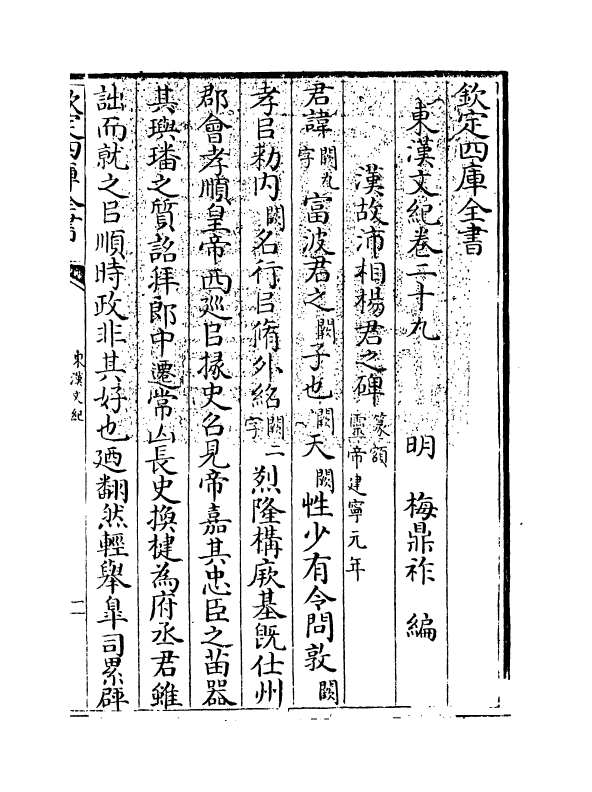 欽定四庫全書
東漢文紀卷二十九
明　梅鼎祚　編
漢故沛相楊君之碑篆額靈帝建寧元年
君諱闕九字富波君之闕子也闕天闕性少有令問敦闕
孝㠯勑内闕名行㠯脩外紹闕二字烈隆構厥基既仕州
郡會孝順皇帝西巡㠯掾史召見帝嘉其忠臣之苗器
其璵璠之質詔拜郎中遷常山長史換楗為府丞君雖
詘而就之㠯順時政非其好也廼翻然輕舉皐司累辟
欽定四庫全書
東漢文紀